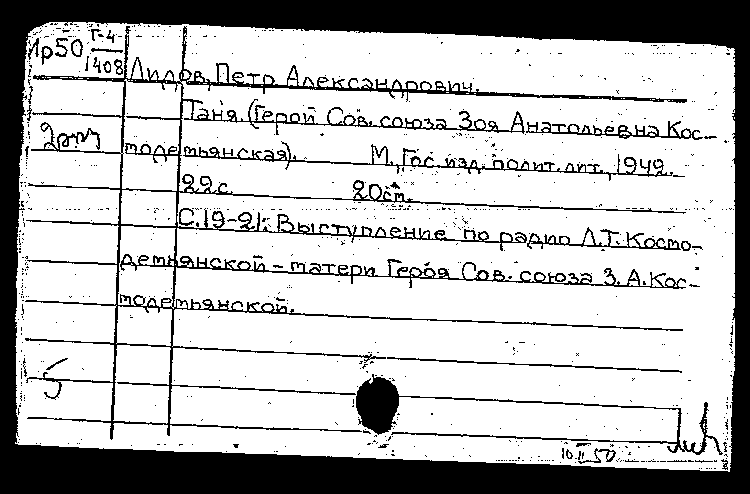 Пр50 Г-4
1408
Лидов, Петр Александрович.
Таня. (Герой Сов. союза Зоя Анатольевна Кос-
модемьянская). М., Гос. изд. полит. лит., 1942.
22 с. 20 см.
С. 19-21: Выступление по радио Л.Т. Космо-
демьянской - матери Героя Сов. союза З. А. Кос-
модемьянской.
5
10 II 50